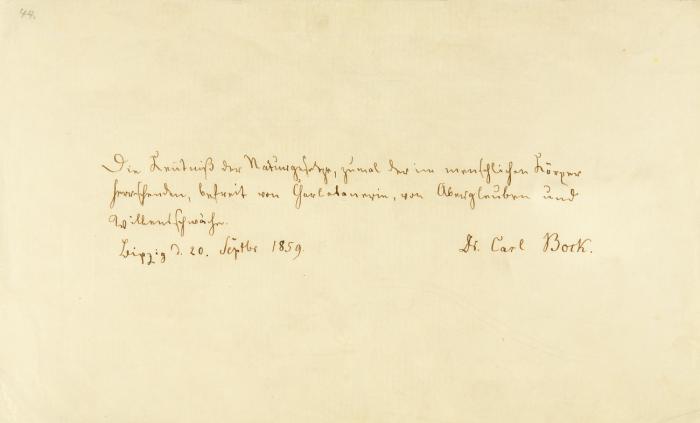 44.
Die Kentniß der Naturgesetze, zumal der im menschlichen Körper
herrschenden, befreit von Charlatanerie, von Aberglauben und
Willensschwäche.
Leipzig d. 20. Septbr 1859.
Dr. Carl Bock.